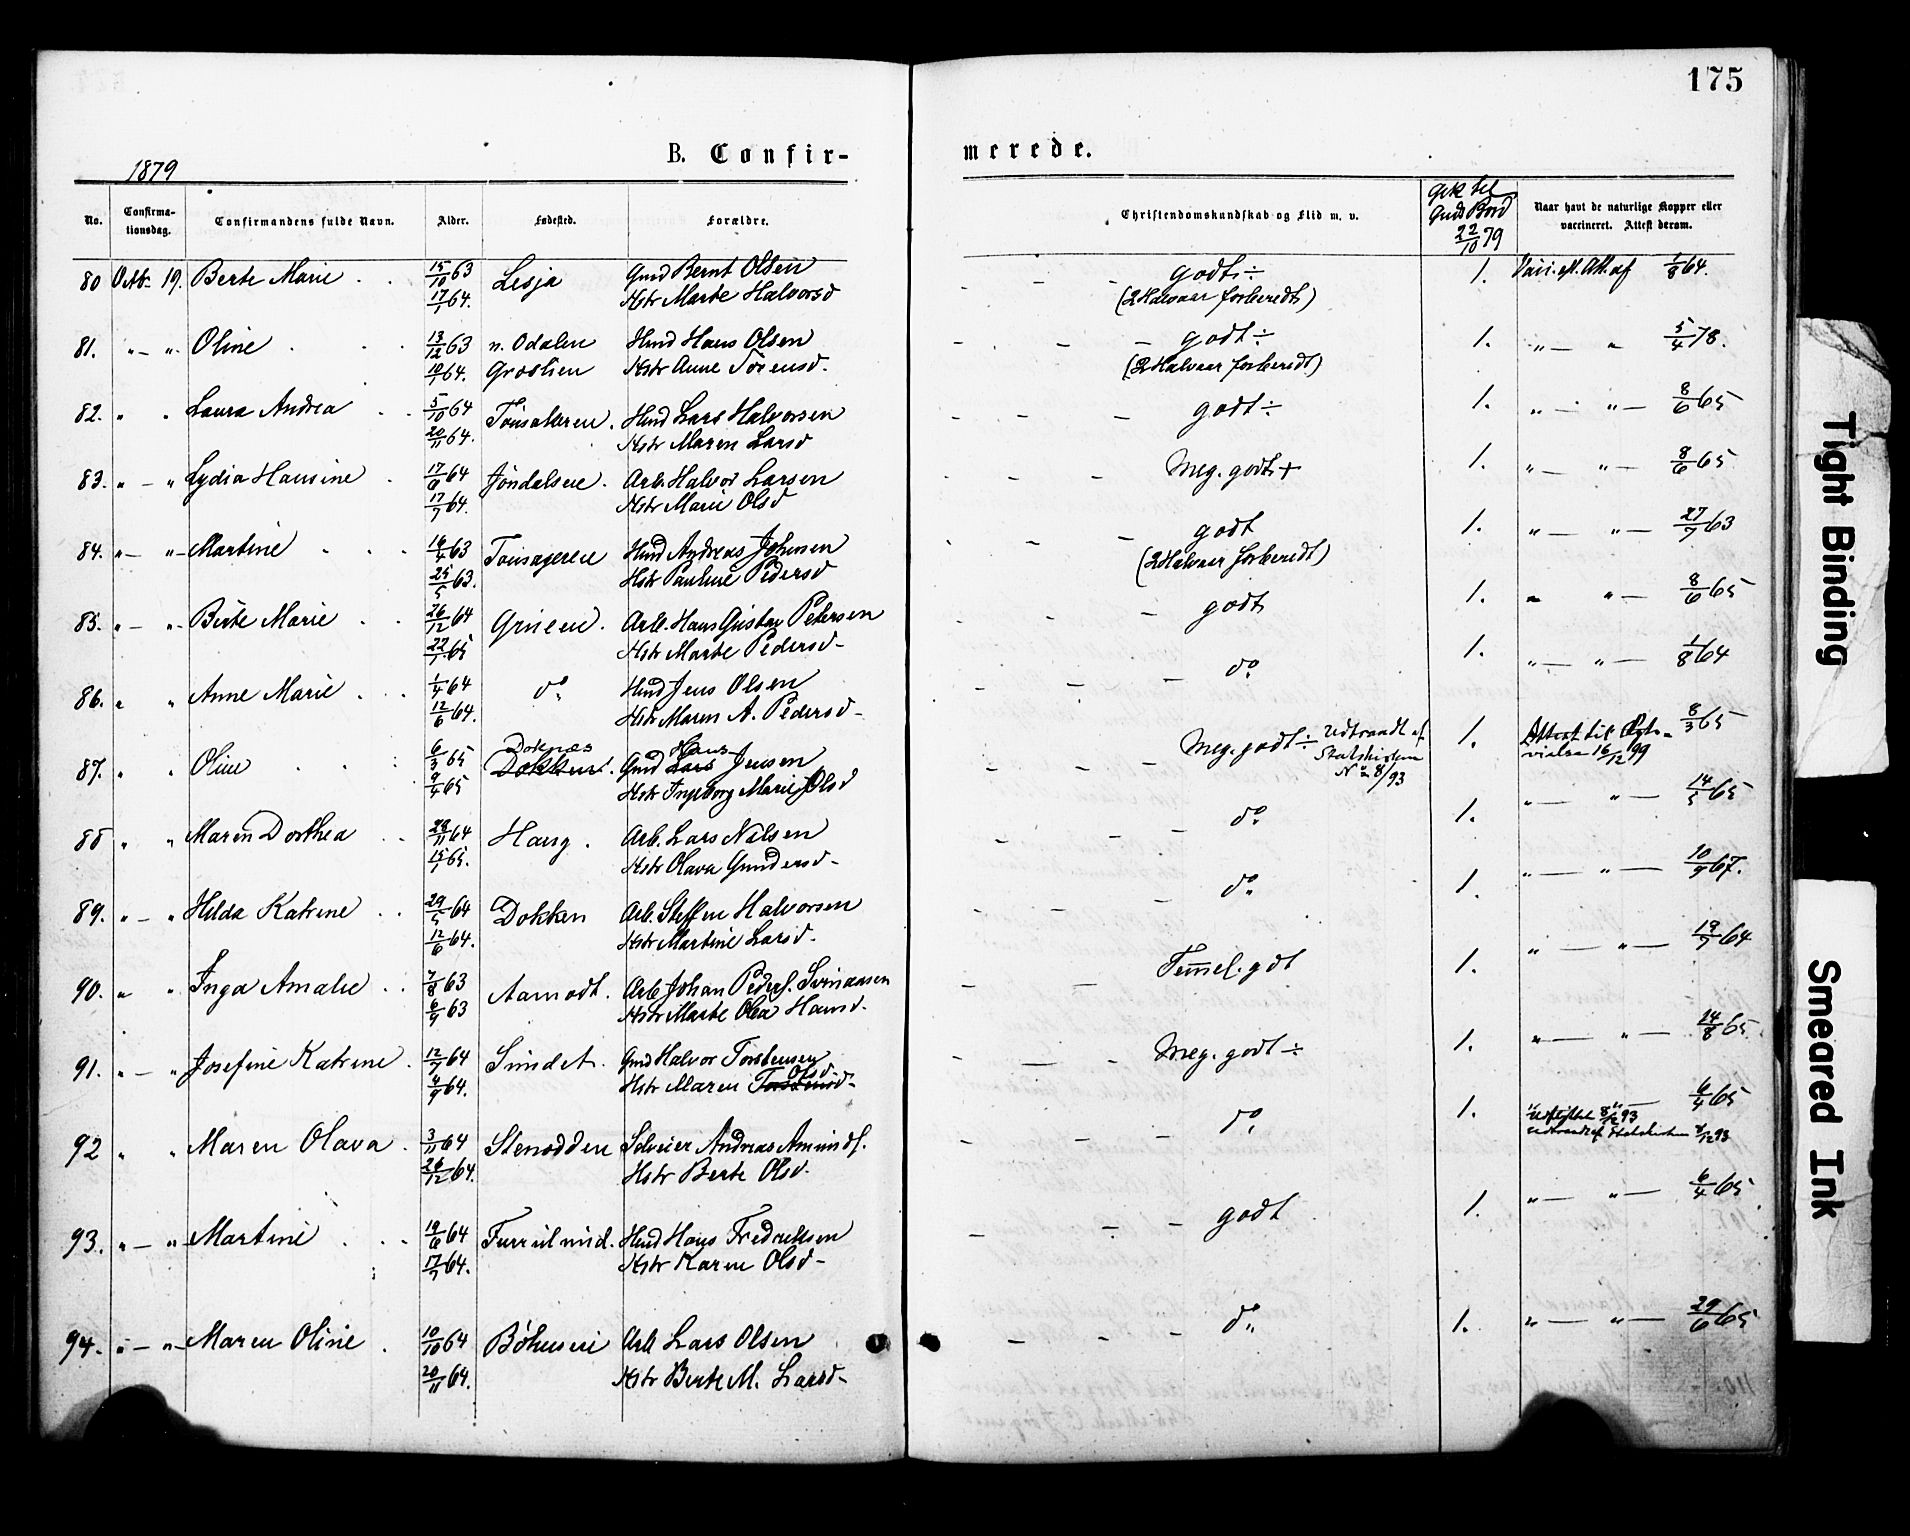 175
1879
B. Confir- merede.
No. Confirma-tionsdag. Confirmandens fulde Navn. Alder. Fødested. Forældre. Christendomskundskab og Flid m. v. Gik til Guds Bord 22/10 79 Naar havt de naturlige Kopper eller vaccineret. Attest derom.
80 Octb. 19. Berte Marie 15/10 63 Lesja Gmd Bernt Olsen - - - godt ÷ 1. Vacc. efl. Att. af 1/8 64.
17/1 64. Hstr Marte Halvorsd (2 Halvaar forberedt)
81. " - " Oline 13/12 63 n. Odalen Hmd Hans Olsen - - - godt ÷ 1. " — " 5/4 78.
10/1 64. Hstr Anne Torensd. (2 Halvaar forberedt)
82. " " Laura Andrea 5/10 64 Hmd Lars Halvorsen - - - godt ÷ 1. " — " — 8/6 65
20/11 64. Hstr Maren Larsd
83. " - " Lydia Hansine 17/6 64 Arb. Halvor Larsen - - - Meg. godt + 1. " — " — 8/6 65
17/7 64. Hstr Marie Olsd
84. " - " Martine 16/4 63 Hmd Andreas Johnsen - - - godt 1. " — " — 27/7 63
25/5 63. Hstr Pauline Pedersd (2 Halvaar forberedt)
85. " - " Berte Marie 26/12 64 Grueen. Arb. Hans Gustav Petersen - - - godt 1. " " — 8/6 65
22/1 65 Hstr Marte Pedersd
86. " " Anne Marie 1/4 64 do Hmd Jens Olsen - - - do 1. " — " — 1/8 64
12/6 64. Hstr Maren A. Pedersd
87. " " Oline 6/3 65 Doknæs Dokken. Gmd Hans Lars Jensen - - - Meg. godt ÷ Udtraadt af Statskirken No 8/93 1. Attest til Ægte-vielse 16/12 99 8/3 65
9/4 65 Hstr Ingeborg Marie Olsd
88 " " Maren Dorthea 28/11 64 Haug. Arb. Lars Nilsen - - - do 1. " — " — 14/5 65
15/1 65. Hstr Olava Gundersd
89. " - " Hilda Katrine 29/5 64 Dokken Arb. Steffen Halvorsen - - - do 1. " — " — 10/9 67.
12/6 64. Hstr Martine Larsd.
90. " " Inga Amalie 7/8 63 Aamodt. Arb Johan Peders. - - - Temel. godt 1. " — " — 19/7 64
6/9 63 Hstr Marte Olea Hansd.
91. " - " Josefine Katrine 12/7 64 Gmd Halvor Torstensen - - - Meg. godt ÷ 1. " — " — 14/8 65
4/9 64. Hstr Maren Torstensd Olsd
92 " " Maren Olava 3/11 64 Stenodden Selveier Andreas Amunds. - - - do 1. " " — 6/4 65
26/12 64. Hstr Berte Olsd. Udtraadt af Statskirken 8/12 93
93. " - " Martine 19/6 64 Hmd Hans Fredriksen - - - godt 1. " — " — 6/4 65
17/7 64. Hstr Karen Olsd
94. " - " - Maren Oline 10/10 64 Arb Lars Olsen - - - do 1. " — " — 29/6 65
20/11 64. Hstr Berte M. Larsd
Tight Binding
Smeared Ink